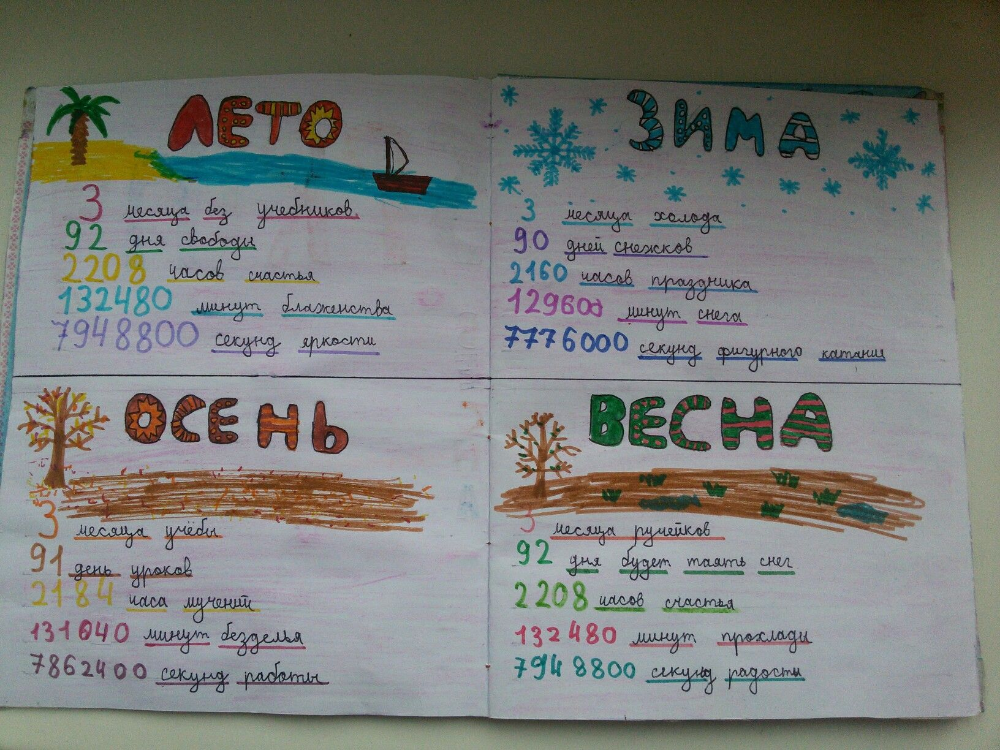 ЛЕТО
3 месяца без учебников
92 дня свободы
2208 часов счастья
132480 минут блаженства
7948800 секунд яркости
ЗИМА
3 месяца холода
90 дней снежков
2160 часов праздника
129600 минут снега
7776000 секунд фигурного катания
ОСЕНЬ
3 месяца учёбы
91 день уроков
2184 часа мучений
131040 минут безделья
7862400 секунд работы
ВЕСНА
3 месяца ручейков
92 дня будет таять снег
2208 часов счастья
132480 минут прохлады
7948800 секунд радости